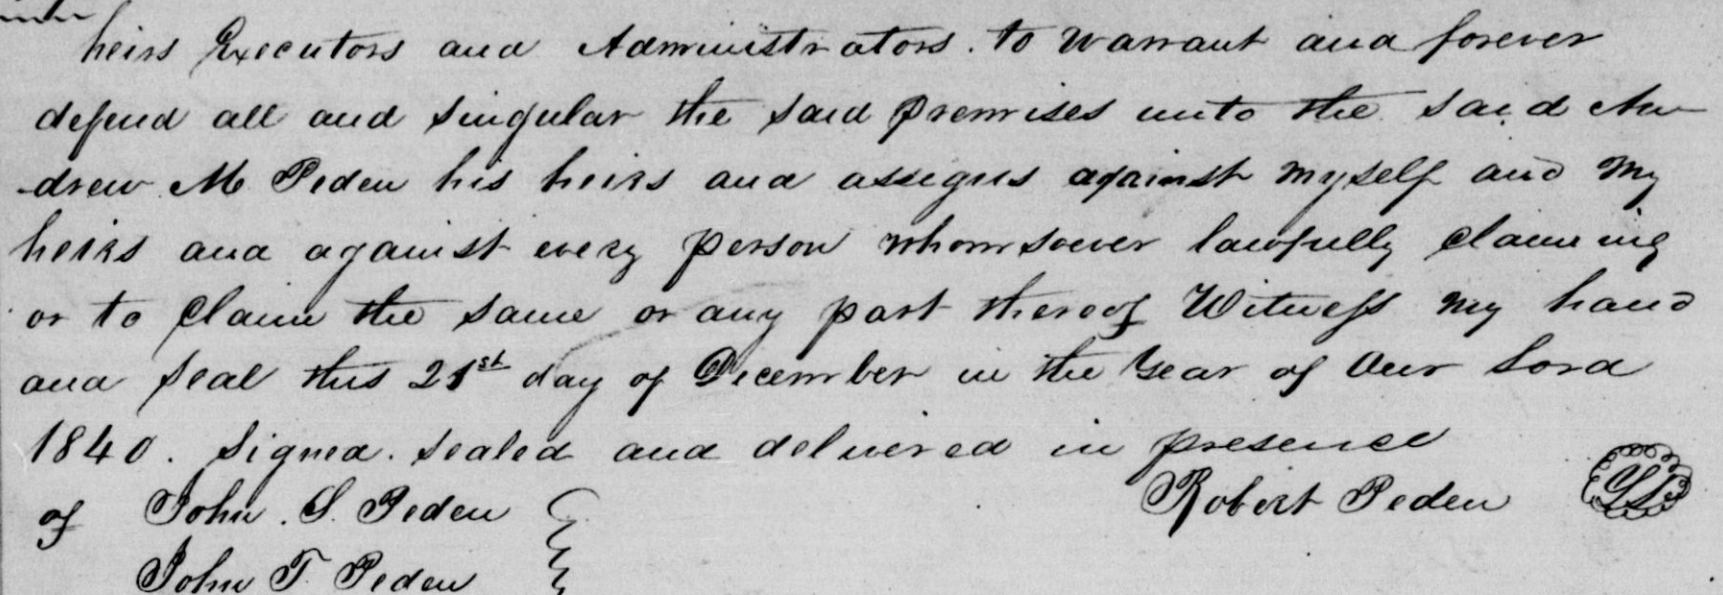 heirs Executors and Administrators. to warrant and forever
defend all and singular the said premises unto the said An
-drew M Peden his heirs and assigns against myself and my
heirs and against every person whomsoever lawfully claiming
or to claim the same or any part thereof Witness my hand
and seal this 21st day of December in the year of our Lord
1840. Signed. sealed and delivered in presence
of John. S. Peden Robert Peden LS
John T. Peden